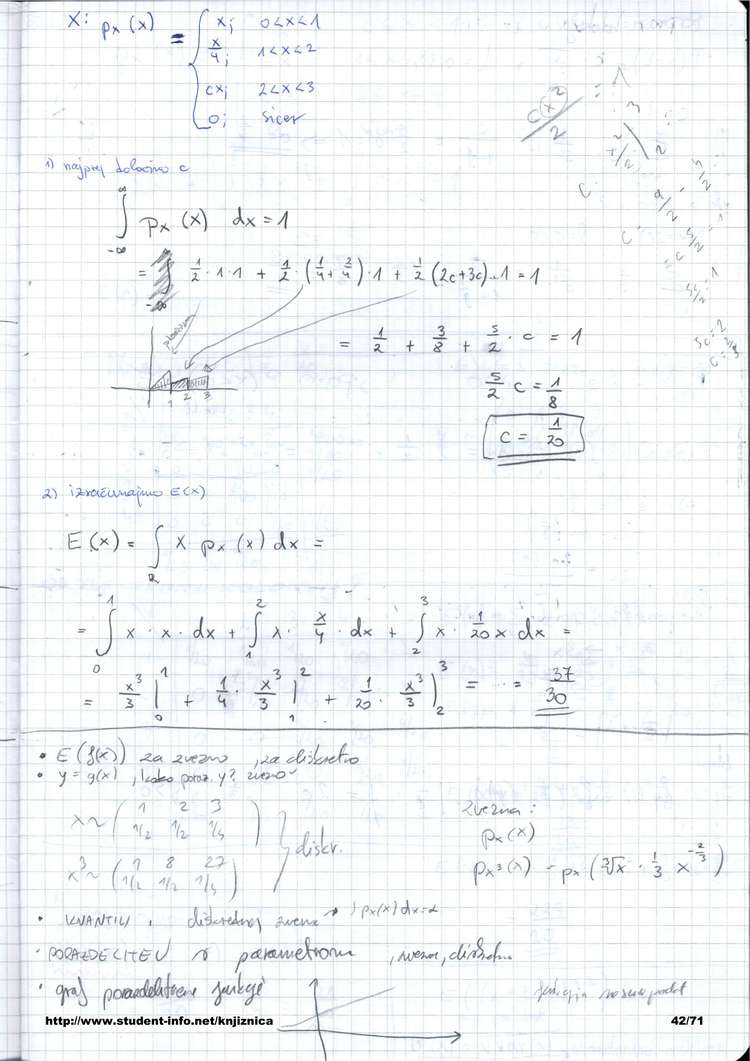 X: pₓ(x) = { x; 0<x<1
x/4; 1<x<2
cx; 2<x<3
0; sicer
1) najprej določimo c
∫_{-∞}^{∞} pₓ(x) dx = 1
= 1/2 · 1 · 1 + 1/2 · (1/4 + 2/4) · 1 + 1/2 (2c+3c) · 1 = 1
= 1/2 + 3/8 + 5/2 · c = 1
1 2 3
5/2 c = 1/8
c = 1/20
2) izračunajmo E(X)
E(x) = ∫_R x pₓ(x) dx =
= ∫_0^1 x · x · dx + ∫_1^2 x · x/4 · dx + ∫_2^3 x · 1/20 x dx =
= x³/3 |_0^1 + 1/4 · x³/3 |_1^2 + 1/20 · x³/3 |_2^3 = ... = 37/30
• E(f(x)) za zvezno, za diskretno
• y = g(x), kako poraz. y? zvezno
x ~ ( 1 2 3
1/2 1/2 1/3 )
x³ ~ ( 1 8 27
1/2 1/2 1/3 )
} diskr.
zvezna:
pₓ(x)
pₓ³(x) = pₓ(∛x · 1/3 x^{-2/3})
• KVANTILI, diskretnej zvezne → ∫ pₓ(x) dx = 2
• PORAZDELITEV s parametrom, zvezna, diskretna
• graf porazdelitvene funkcije
http://www.student-info.net/knjiznica
42/71